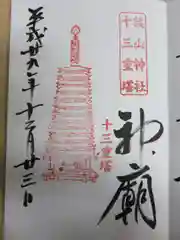 談山神社
十三重塔
神廟
十三重塔
平成廿九年十二月廿三日